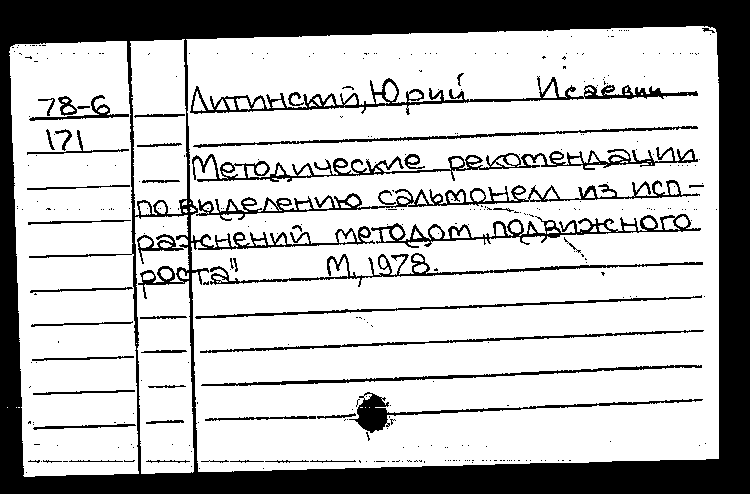 78-6 Литинский, Юрий Исаевич
171
Методические рекомендации
по выделению сальмонелл из исп-
ражнений методом „подвижного
роста". М., 1978.